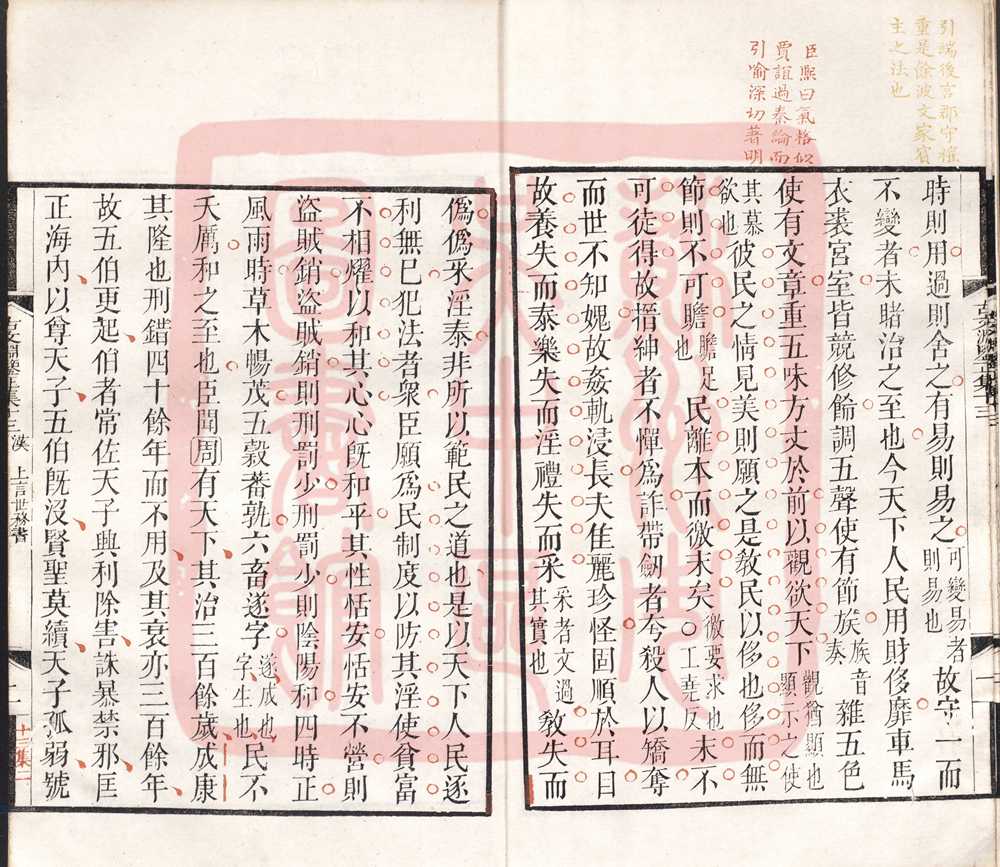 引端後言郡守權
重是餘波文家賓
主之法也
臣熙曰氣格似
賈誼過秦論而
引喻深切著明
時則用過則舍之有易則易之可變易者則易也故守一而
不變者未睹治之至也今天下人民用財侈靡車馬
衣裘宮室皆競修餙調五聲使有節族族音奏雜五色
使有文章重五味方丈於前以觀欲天下觀猶顯也顯示之使
其慕欲也彼民之情見美則願之是敎民以侈也侈而無
節則不可贍贍足也民離本而徼末矣徼要求也○工堯反末不
可徒得故搢紳者不憚爲詐帶劒者夸殺人以矯奪
而世不知媿故姦軌浸長夫佳麗珍怪固順於耳目
故養失而泰樂失而淫禮失而采采者文過其實也敎失而
僞僞采淫泰非所以範民之道也是以天下人民逐
利無已犯法者衆臣願爲民制度以防其淫使貧富
不相燿以和其心心旣和平其性恬安恬安不營則
盜賊銷盜賊銷則刑罰少刑罰少則陰陽和四時正
風雨時草木暢茂五穀蕃孰六畜遂字遂成也字生也民不
夭厲和之至也臣聞周有天下其治三百餘歲成康
其隆也刑錯四十餘年而不用及其衰亦三百餘年
故五伯更起伯者常佐天子興利除害誅暴禁邪匡
正海內以尊天子五伯旣沒賢聖莫續天子孤弱號
古文淵鑒正集十三 漢 上言世務書
二
十三集二
一